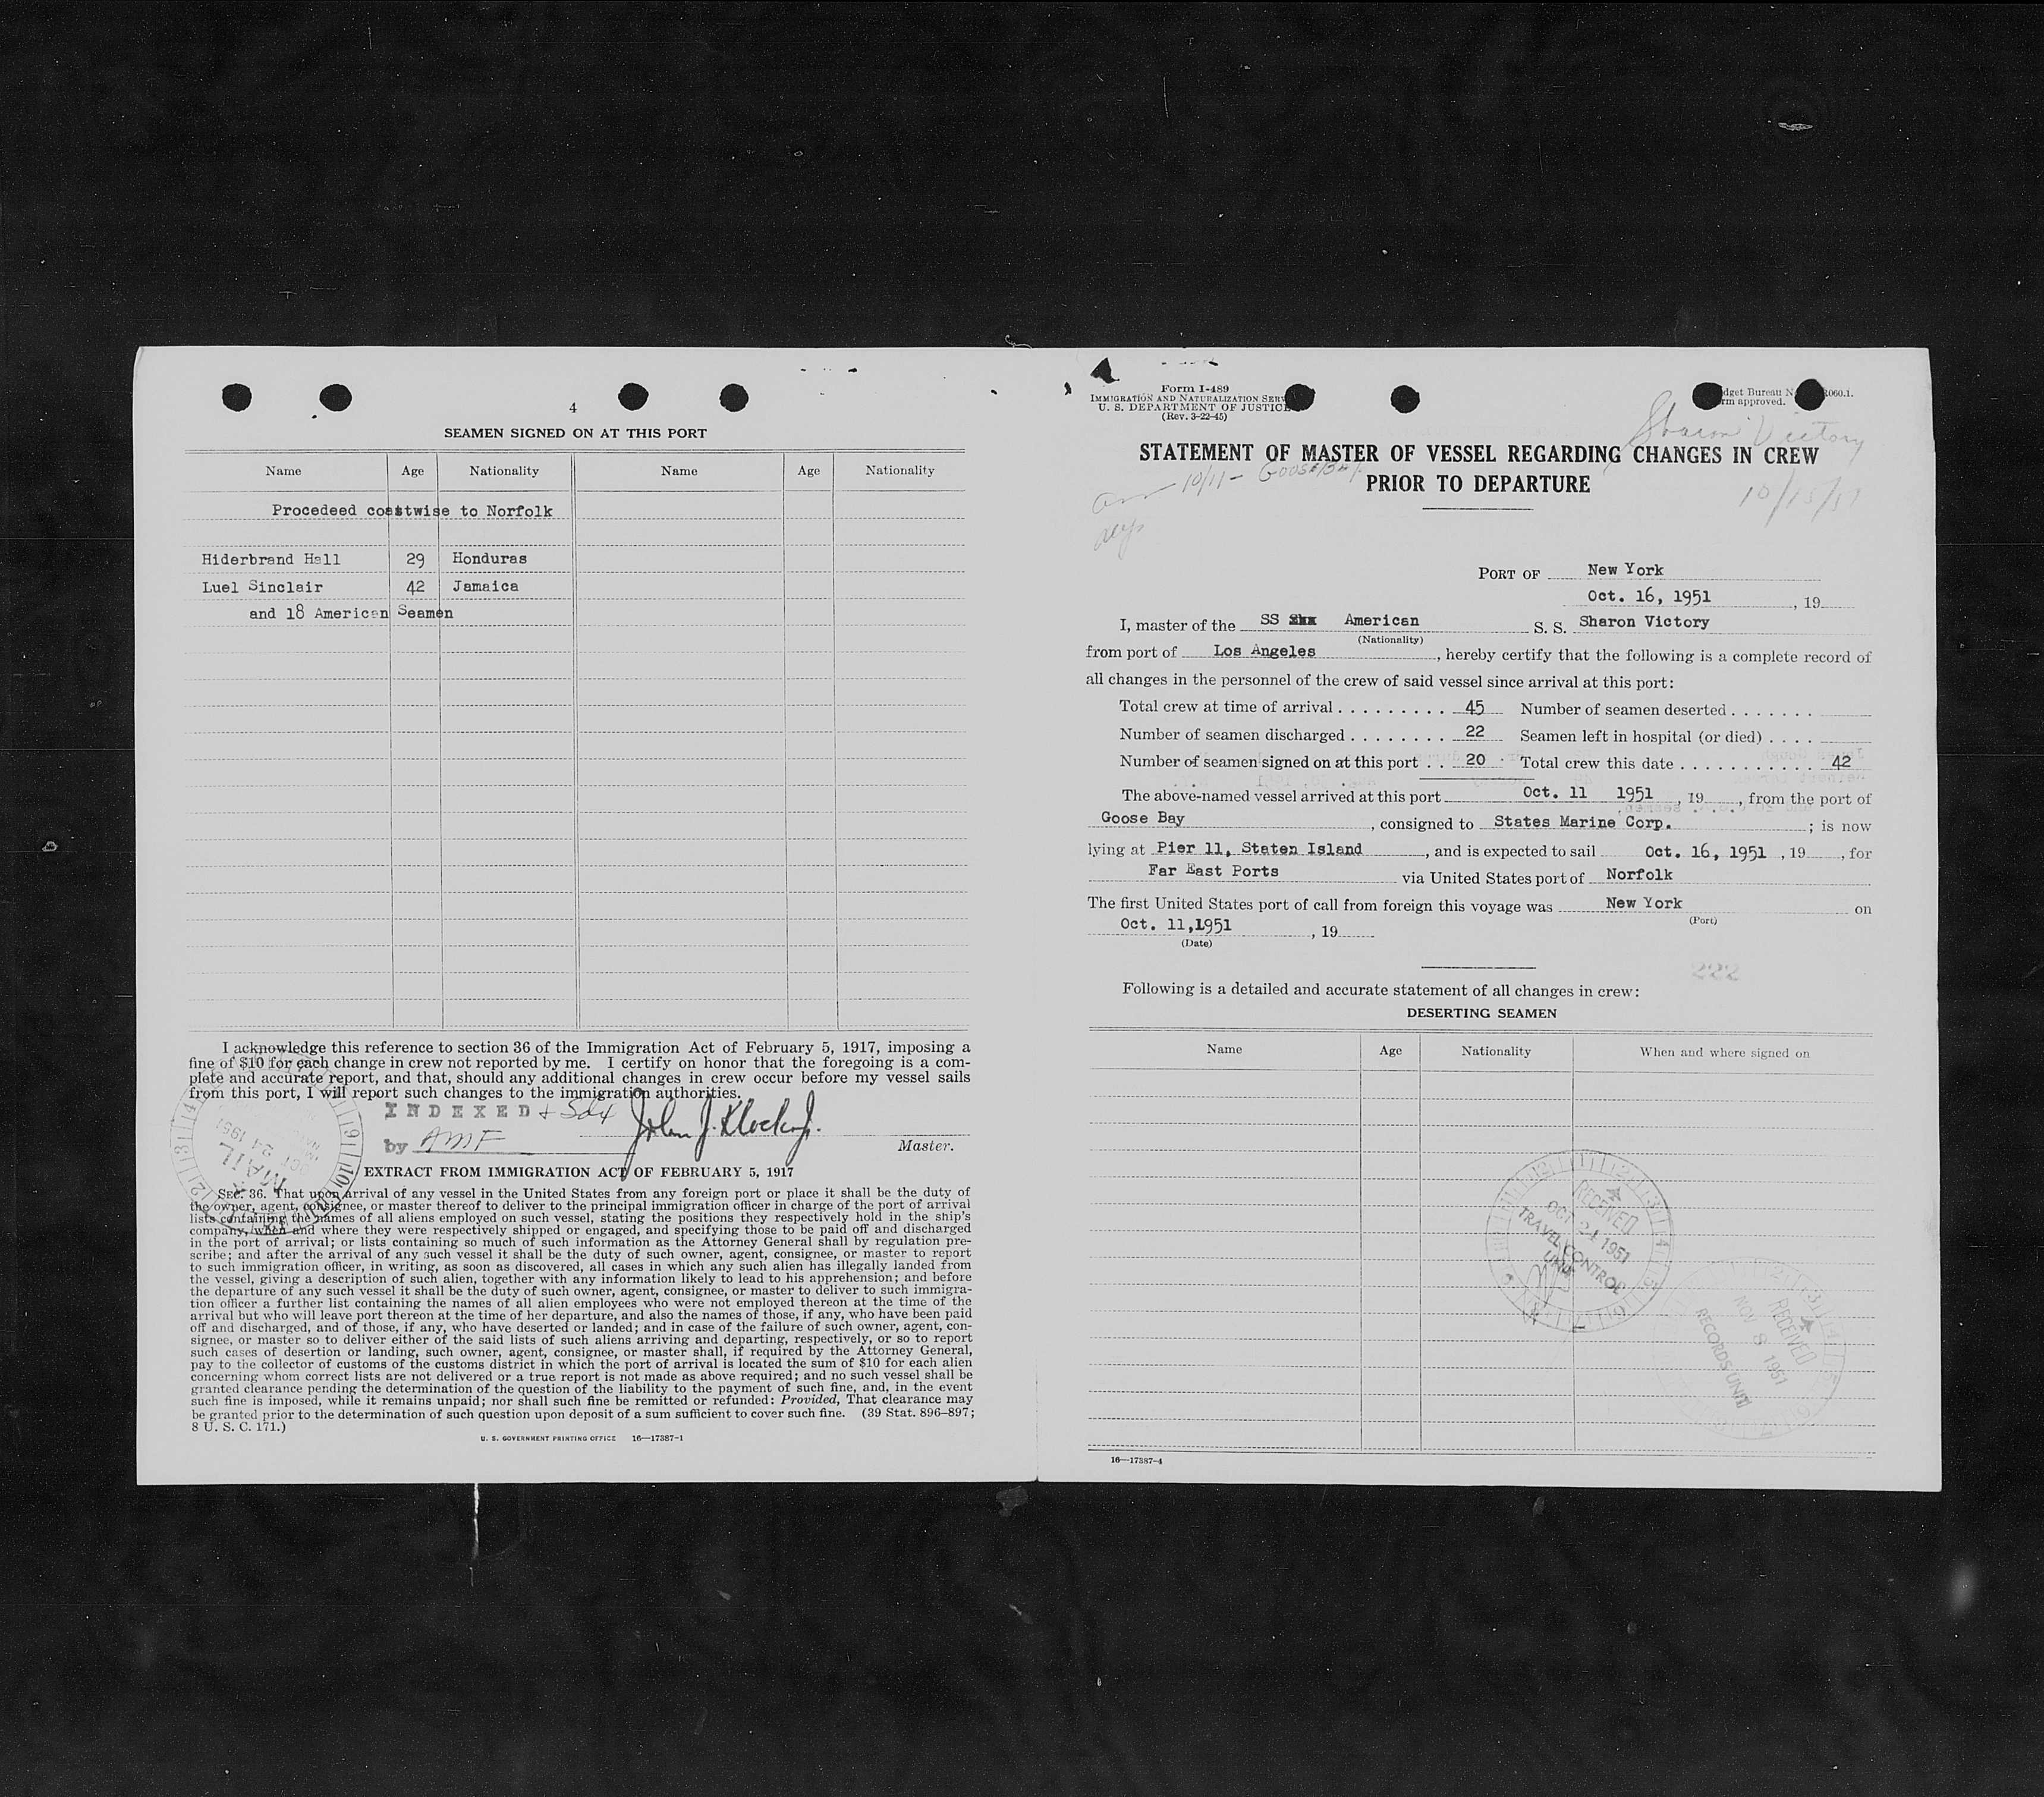 4
SEAMEN SIGNED ON AT THIS PORT
Name Age Nationality Name Age Nationality
Procedeed coastwise to Norfolk
Hiderbrand Hall 29 Honduras
Luel Sinclair 42 Jamaica
and 18 American Seamen
I acknowledge this reference to section 36 of the Immigration Act of February 5, 1917, imposing a
fine of $10 for each change in crew not reported by me. I certify on honor that the foregoing is a com-
plete and accurate report, and that, should any additional changes in crew occur before my vessel sails
from this port, I will report such changes to the immigration authorities.
INDEXED
by AMF
Master.
MAIL
OCT 24 1951
EXTRACT FROM IMMIGRATION ACT OF FEBRUARY 5, 1917
SEC. 36. That upon arrival of any vessel in the United States from any foreign port or place it shall be the duty of
the owner, agent, consignee, or master thereof to deliver to the principal immigration officer in charge of the port of arrival
lists containing the names of all aliens employed on such vessel, stating the positions they respectively hold in the ship's
company, when and where they were respectively shipped or engaged, and specifying those to be paid off and discharged
in the port of arrival; or lists containing so much of such information as the Attorney General shall by regulation pre-
scribe; and after the arrival of any such vessel it shall be the duty of such owner, agent, consignee, or master to report
to such immigration officer, in writing, as soon as discovered, all cases in which any such alien has illegally landed from
the vessel, giving a description of such alien, together with any information likely to lead to his apprehension; and before
the departure of any such vessel it shall be the duty of such owner, agent, consignee, or master to deliver to such immigra-
tion officer a further list containing the names of all alien employees who were not employed thereon at the time of the
arrival but who will leave port thereon at the time of her departure, and also the names of those, if any, who have been paid
off and discharged, and of those, if any, who have deserted or landed; and in case of the failure of such owner, agent, con-
signee, or master so to deliver either of the said lists of such aliens arriving and departing, respectively, or so to report
such cases of desertion or landing, such owner, agent, consignee, or master shall, if required by the Attorney General,
pay to the collector of customs of the customs district in which the port of arrival is located the sum of $10 for each alien
concerning whom correct lists are not delivered or a true report is not made as above required; and no such vessel shall be
granted clearance pending the determination of the question of the liability to the payment of such fine, and, in the event
such fine is imposed, while it remains unpaid; nor shall such fine be remitted or refunded: Provided, That clearance may
be granted prior to the determination of such question upon deposit of a sum sufficient to cover such fine. (39 Stat. 896–897;
8 U. S. C. 171.)
U. S. GOVERNMENT PRINTING OFFICE 16—17387-1
Form I-489
IMMIGRATION AND NATURALIZATION SERV
U. S. DEPARTMENT OF JUSTICE
(Rev. 3-22-45)
dget Bureau N 060.1.
rm approved.
Sharon Victory
STATEMENT OF MASTER OF VESSEL REGARDING CHANGES IN CREW
PRIOR TO DEPARTURE
10/11 - Goose Bay
10/15/51
PORT OF New York
Oct. 16, 1951 , 19
I, master of the SS American S. S. Sharon Victory
(Nationality)
from port of Los Angeles , hereby certify that the following is a complete record of
all changes in the personnel of the crew of said vessel since arrival at this port:
Total crew at time of arrival 45 Number of seamen deserted
Number of seamen discharged 22 Seamen left in hospital (or died)
Number of seamen signed on at this port 20 Total crew this date 42
The above-named vessel arrived at this port Oct. 11 1951 , 19 , from the port of
Goose Bay , consigned to States Marine Corp. ; is now
lying at Pier 11, Staten Island , and is expected to sail Oct. 16, 1951 , 19 , for
Far East Ports via United States port of Norfolk
The first United States port of call from foreign this voyage was New York on
(Port)
Oct. 11,1951 , 19
(Date)
222
Following is a detailed and accurate statement of all changes in crew:
DESERTING SEAMEN
Name Age Nationality When and where signed on
RECEIVED
OCT 24 1951
TRAVEL CONTROL
UNIT
RECEIVED
NOV 8 1951
RECORDS UNIT
16—17387-4